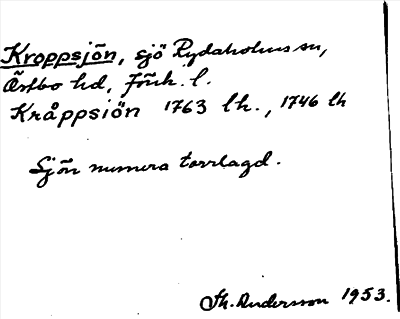 Kroppsjön, sjö Rydaholms sn,
Östbo hd, Jönk. l.
Kråppsiön 1763 lh., 1746 lh
Sjön numera torrlagd.
Th. Andersson 1953.